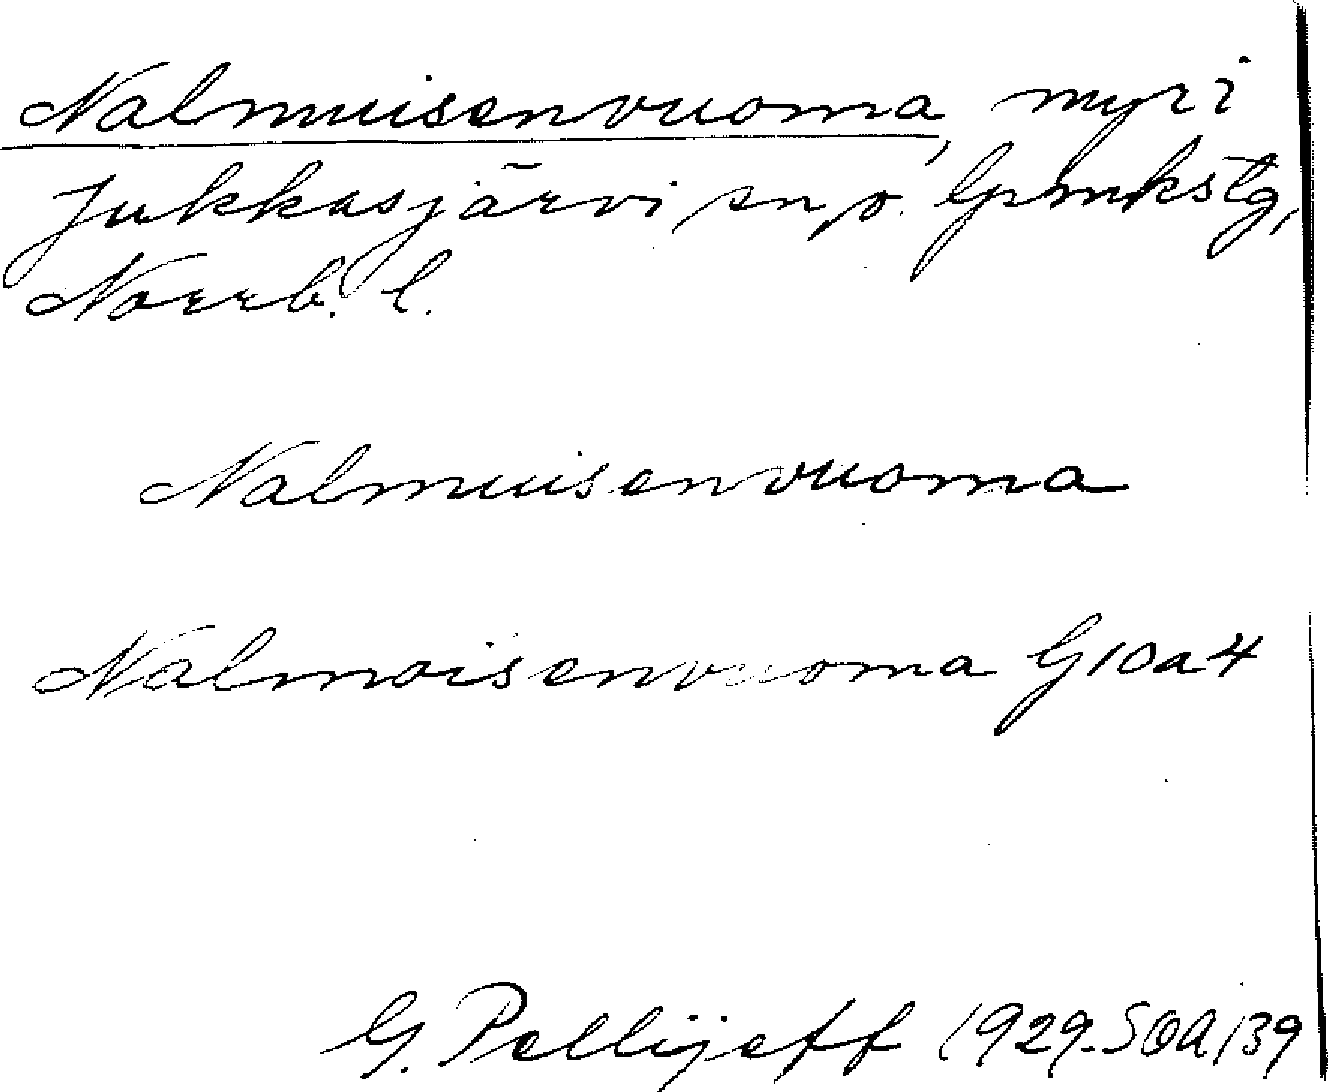 Nalmuisenvuoma, myr i
Jukkasjärvi sn o. lpmkstg,
Norrb. l.
Nalmuisenvuoma
Nalmoisenvuoma G10a4
G. Pellijeff 1929. SOA/39